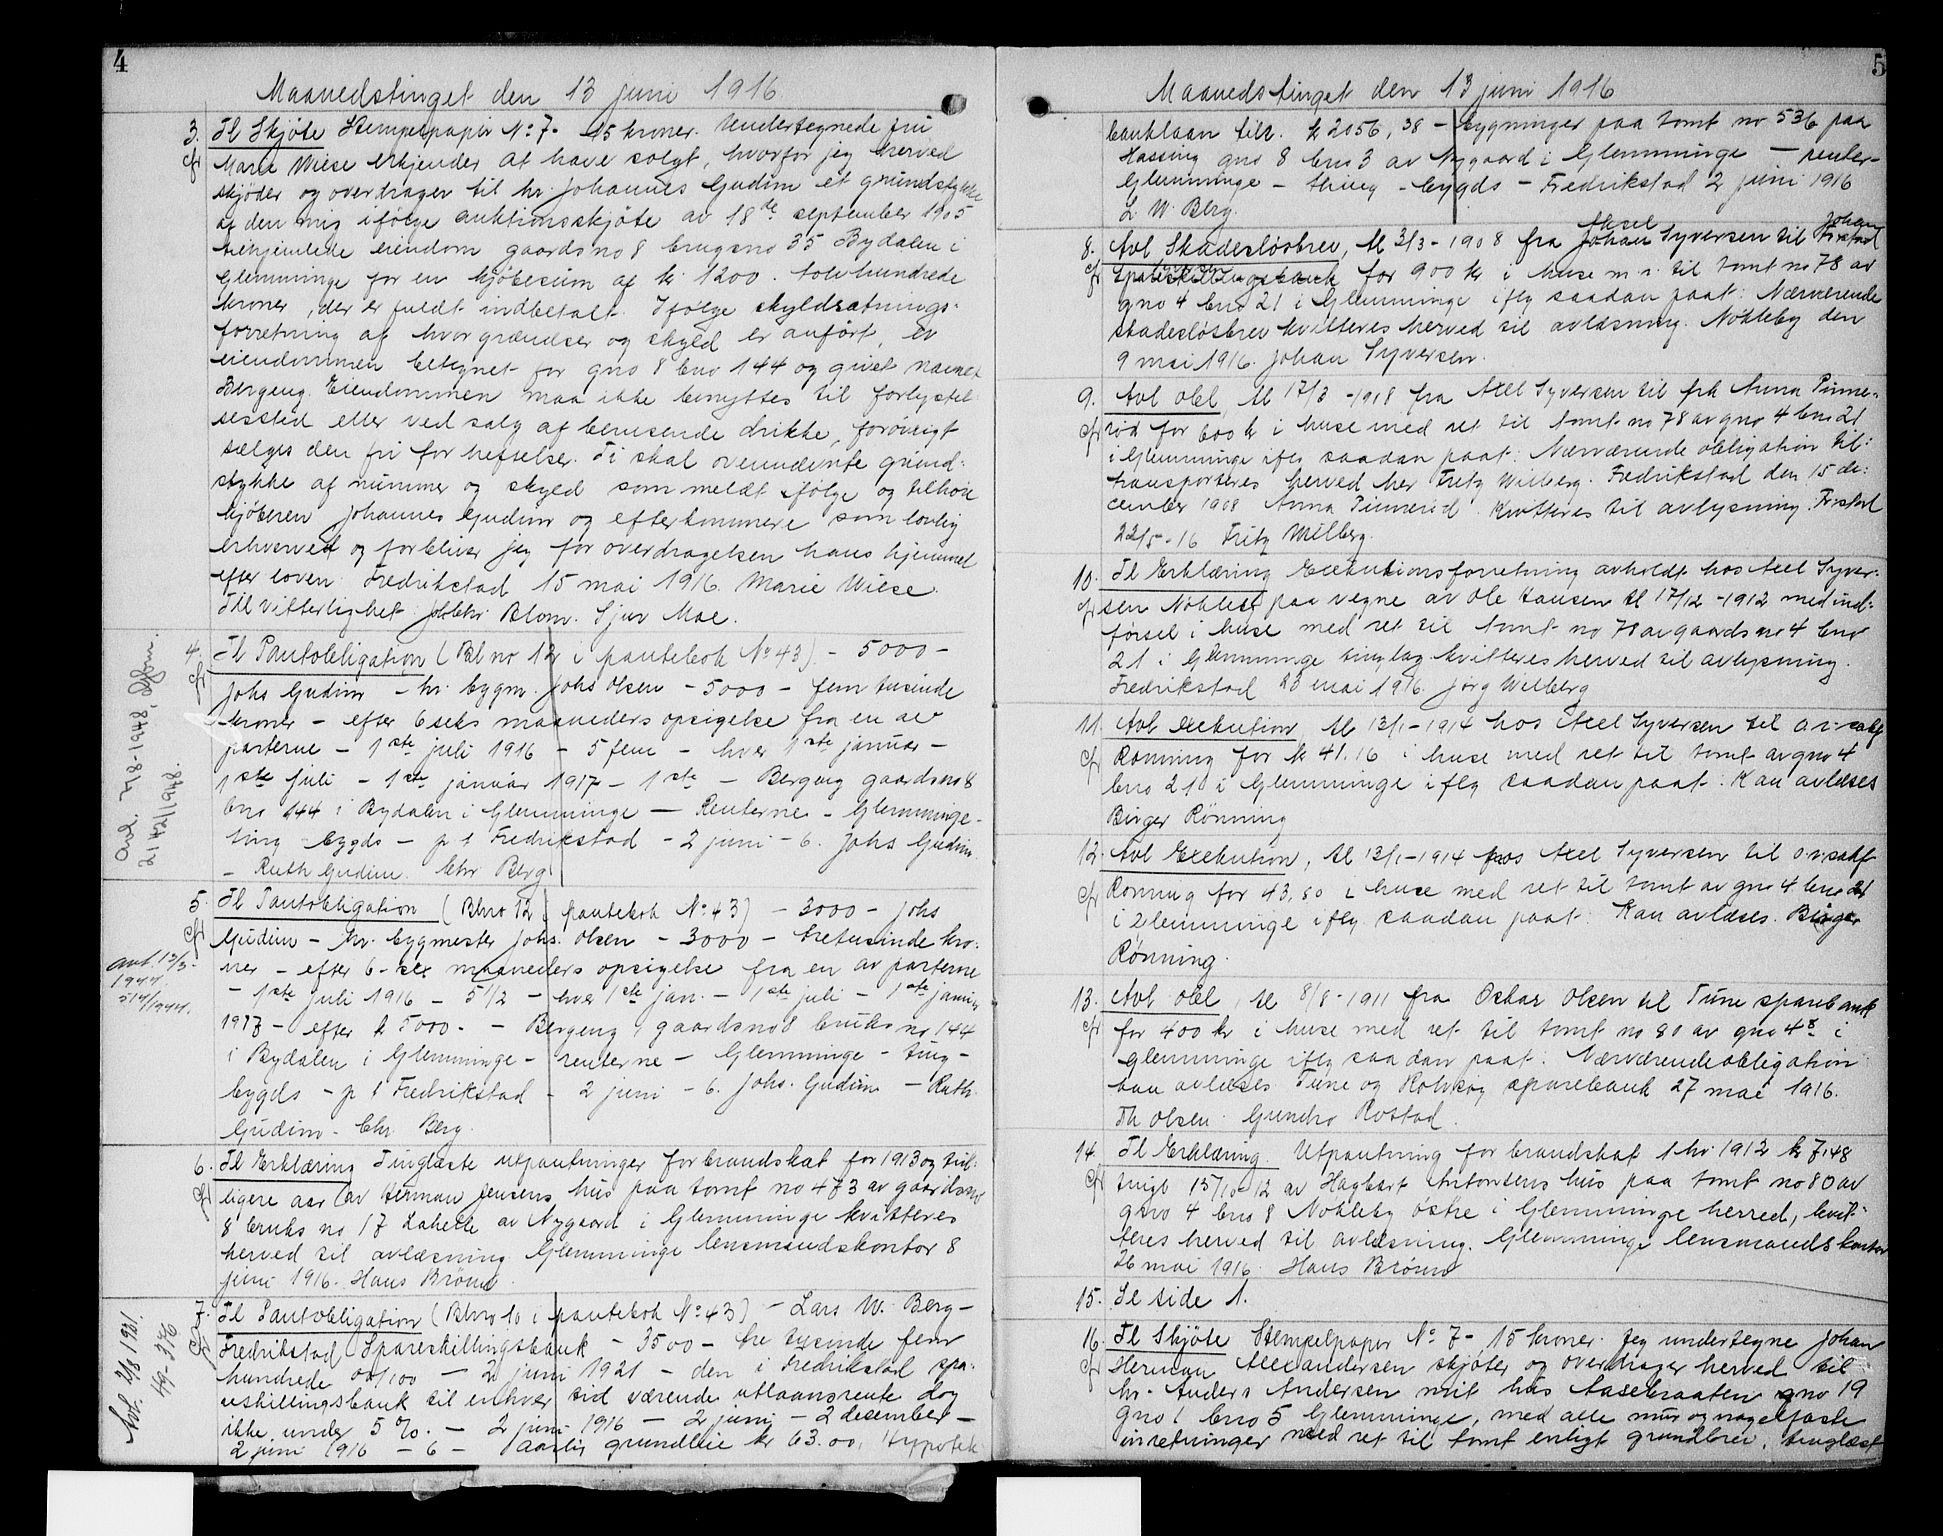 4
Maanedstinget den 13 juni 1916.
3. Tl Skjöte Stempelpapir No 7 - 15 kroner. Undertegnede fru
cfr Marie Wiese erkjender at have solgt, hvorfor jeg herved
skjöder og overdrager til hr. Johannes Gudim et grundstykke
af den mig ifölge auktionsskjöte av 18de september 1905
tilhjemlede eiendom gaardsno 8 brugsno 35 Bydalen i
Glemminge for en kjöbesum af kr 1200. tolvhundrede
kroner, der er fuldt indbetalt. Ifölge skyldsætnings-
forretning af hvor grændser og skyld er anfört, er
eiendommen betegnet for gno 8 bno 144 og givet navnet
Bergeng. Eiendommen maa ikke benyttes til forlystel
sessted eller ved salg af berusende drikke, forövrigt
sælges den fri for heftelser. Ti skal ovennævnte grund-
stykke af nummer og skyld som meldt fölge og tilhöre
kjöberen Johannes Gudim og efterkommere som lovlig
erhvervet og forbliver jeg for overdragelsen hans hjemmel
efter loven. Fredrikstad 15 mai 1916. Marie Wiese.
Til vitterlighet Joh Chr. Blom. Sjur Moe.
4. Tl Pantobligation (Bl no 12 i pantebok No 43) - 5000 -
cfr Johs Gudim - hr. bygm. Johs Olsen - 5000 - fem tusinde
kroner - efter 6 seks maaneders opsigelse fra en av
parterne - 1ste juli 1916 - 5 fem - hver 1ste januar -
1ste juli - 1ste januar 1917 - 1ste - Bergeng gaardsno 8
bno 144 i Bydalen i Glemminge - Renterne - Glemminge-
ting - bygds - p t Fredrikstad - 2 juni - 6. Johs Gudim
- Ruth Gudim. Chr Berg
Avl. 7/8-1948,
2142/1948.
5. Tl Pantobligation (Bl no 12 i pantebok No 43) - 3000 - Johs
cfr Gudim - hr. bygmester Johs. Olsen - 3000 - tretusinde kro-
ner - efter 6 - sex maaneders opsigelse fra en av parterne
- 1ste juli 1916 - 5 1/2 - hver 1ste jan. - 1ste juli - 1ste januar
1917 - efter k 5000. - Bergeng gaardsno 8 bruks no 144
i Bydalen i Glemminge - renterne - Glemminge - ting -
bygds - p t Fredrikstad - 2 juni - 6. Johs. Gudim - Ruth
Gudim - Chr. Berg.
avl. 13/3-
1944.
514/1944.
6. Tl Erklæring Tinglæste utpantninger for brandskat for 1913 og tid-
cfr ligere aar av Herman Jensens hus paa tomt no 473 av gaardsno
8 bruks no 17 Labette av Nygaard i Glemminge kvitteres
herved til avlæsning Glemminge lensmandskontor 8
juni 1916. Hans Brönn.
7. Tl Pantobligation (Bl no 10 i pantebok No 43) - Lars W. Berg -
cfr Fredrikstad Spareskillingsbank - 3500 - tre tusinde fem
hundrede 00/100 - 2 juni 1921 - den i Fredrikstad spa-
reskillingsbank til enhver tid værende utlaansrente dog
ikke under 5 %. - 2 juni 1916 - 2 juni - 2 desember -
2 juni 1916 - 6 - Aarlig grundleie kr 63.00, Hypotek
Avl. 2/8 1921.
49-326
5
Maanedstinget den 13 juni 1916
banklaan tilh. k 2056,38 - bygninger paa tomt no 536 paa
Hassing gno 8 bno 3 av Nygaard i Glemminge - renter-
Glemminge - thing - bygds - Fredrikstad 2 juni 1916
L. W. Berg.
8. Avl Skadeslösbrev, tl 3/3-1908 fra Aksel Johan Syversen til Johan Fr.stad
cfr Spareskillingsbank for 900 kr i huse m r. til tomt no 78 av
gno 4 bno 21 i Glemminge iflg saadan paat: Nærværende
skadeslösbrev kvitteres herved til avlæsning. Nökleby den
9 mai 1916. Johan Syversen.
9. Avl obl, tl 17/3-1908 fra Axel Syversen til frk Anna Pinne-
cfr röd for 600 kr i huse med ret til tomt no 78 av gno 4 bno 21
i Glemminge iflg saadan paat: Nærværende obligation til-
transporteres herved her Fritz Wilberg. Fredrikstad den 15 de-
cember 1908 Anna Pinneröd. Kvitteres til avlysning. Fr.stad
22/5-16 Fritz Wilberg.
10. Tl Erklæring Executionsforretning avholdt hos Axel Syver-
cfr sen Nökleby paa vegne av Ole Hansen tl 17/12-1912 med ind-
försel i huse med ret til tomt no 78 av gaardsno 4 bno
21 i Glemminge tinglag kvitteres herved til avlysning.
Fredrikstad 23 mai 1916. Jörg Wilberg
11. Avl execution, tl 13/1-1914 hos Axel Syversen til o.r.sakf
cfr Rönning for k 41.16 i huse med ret til tomt av gno 4
bno 21 i Glemminge iflg saadan paat: Kan avlæses
Birger Rönning
12. Avl Execution, tl 13/1-1914 hos Axel Syversen til o.r.sakf
cfr Rönning for 43,80 i huse med ret til tomt av gno 4 bno 21
i Glemminge iflg saadan paat: Kan avlæses. Birger
Rönning.
13. Avl obl, tl 8/8-1911 fra Oskar Olsen til Tune sparebank
cfr for 400 kr i huse med ret til tomt no 80 av gno 4 8 i
Glemminge iflg saadan paat: Nærværende obligation
kan avlæses Tune og Rolvsöy sparebank 27 mai 1916.
Th Olsen. Gundro Rostad.
14. Tl Erklæring. Utpantning for brandskat 1 hv 1912 kr 7.48
cfr tingl 15/10-12 av Hagbart Antonsens hus paa tomt no 80 av
gno 4 bno 8 Nökleby östre i Glemminge herred, kvit-
teres herved til avlæsning. Glemminge lensmandskontor
26 mai 1916. Hans Brönn
15. Se side 1.
16. Tl Skjöte Stempelpapir No 7 - 15 kroner. Jeg undertegne Johan
cfr Herman Alexandersen skjöter og overdrager herved til
hr. Anders Andersen mit hus Aasebraaten no 19
gno 1 bno 5 Glemminge, med alle mur og nagelfaste
inretninger med ret til tomt enligt grundbrev, tinglæst